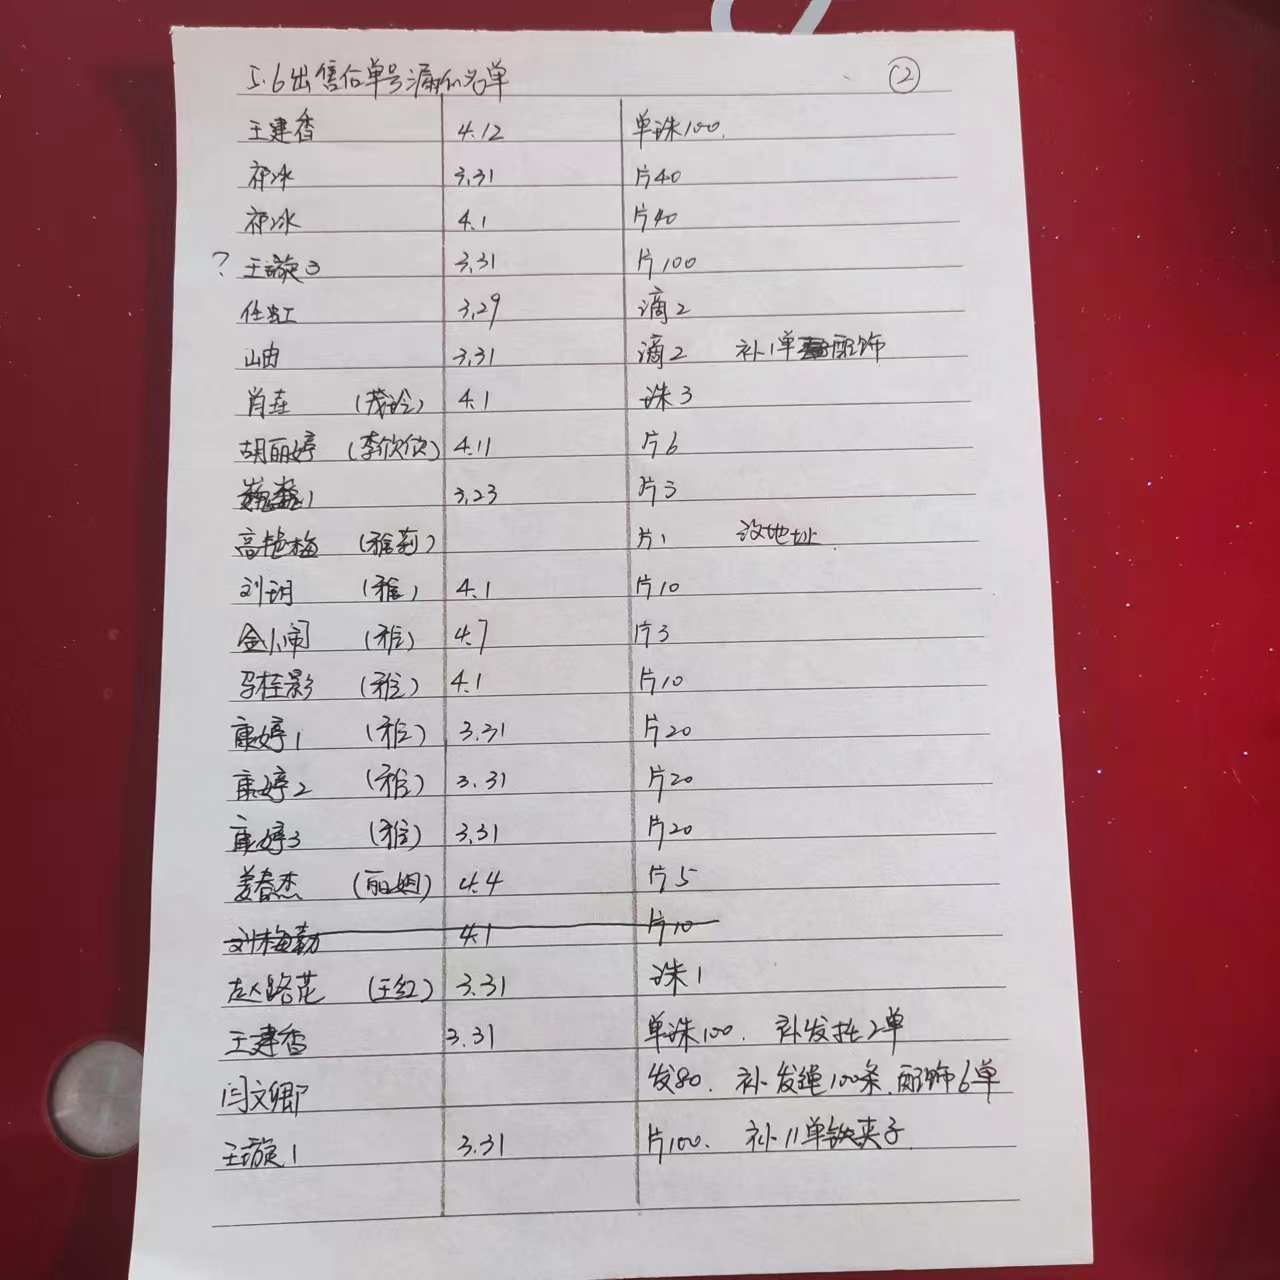 5.6出售后单号漏的名单 ②
王建香 4.12 单珠100.
祁冰 3.31 片40
祁冰 4.1 片40
? 王璇3 3.31 片100
任虹 3.29 滴2
山由 3.31 滴2 补1单配饰
肖垚 (茂玲) 4.1 珠3
胡丽婷 (李欣欣) 4.11 片6
1 3.23 片3
高艳梅 (雅莉) 片1 没地址.
刘玥 (雅) 4.1 片10
金小闹 (雅) 4.7 片3
马桂影 (雅) 4.1 片10
康婷1 (雅) 3.31 片20
康婷2 (雅) 3.31 片20
康婷3 (雅) 3.31 片20
姜春杰 (丽姐) 4.4 片5
刘梅勤 4.1 片10
赵路花 (王红) 3.31 珠1
王建香 3.31 单珠100. 补发托2单
闫文卿 发80. 补发绳100条.配饰6单
王璇1 3.31 片100. 补11单铁夹子